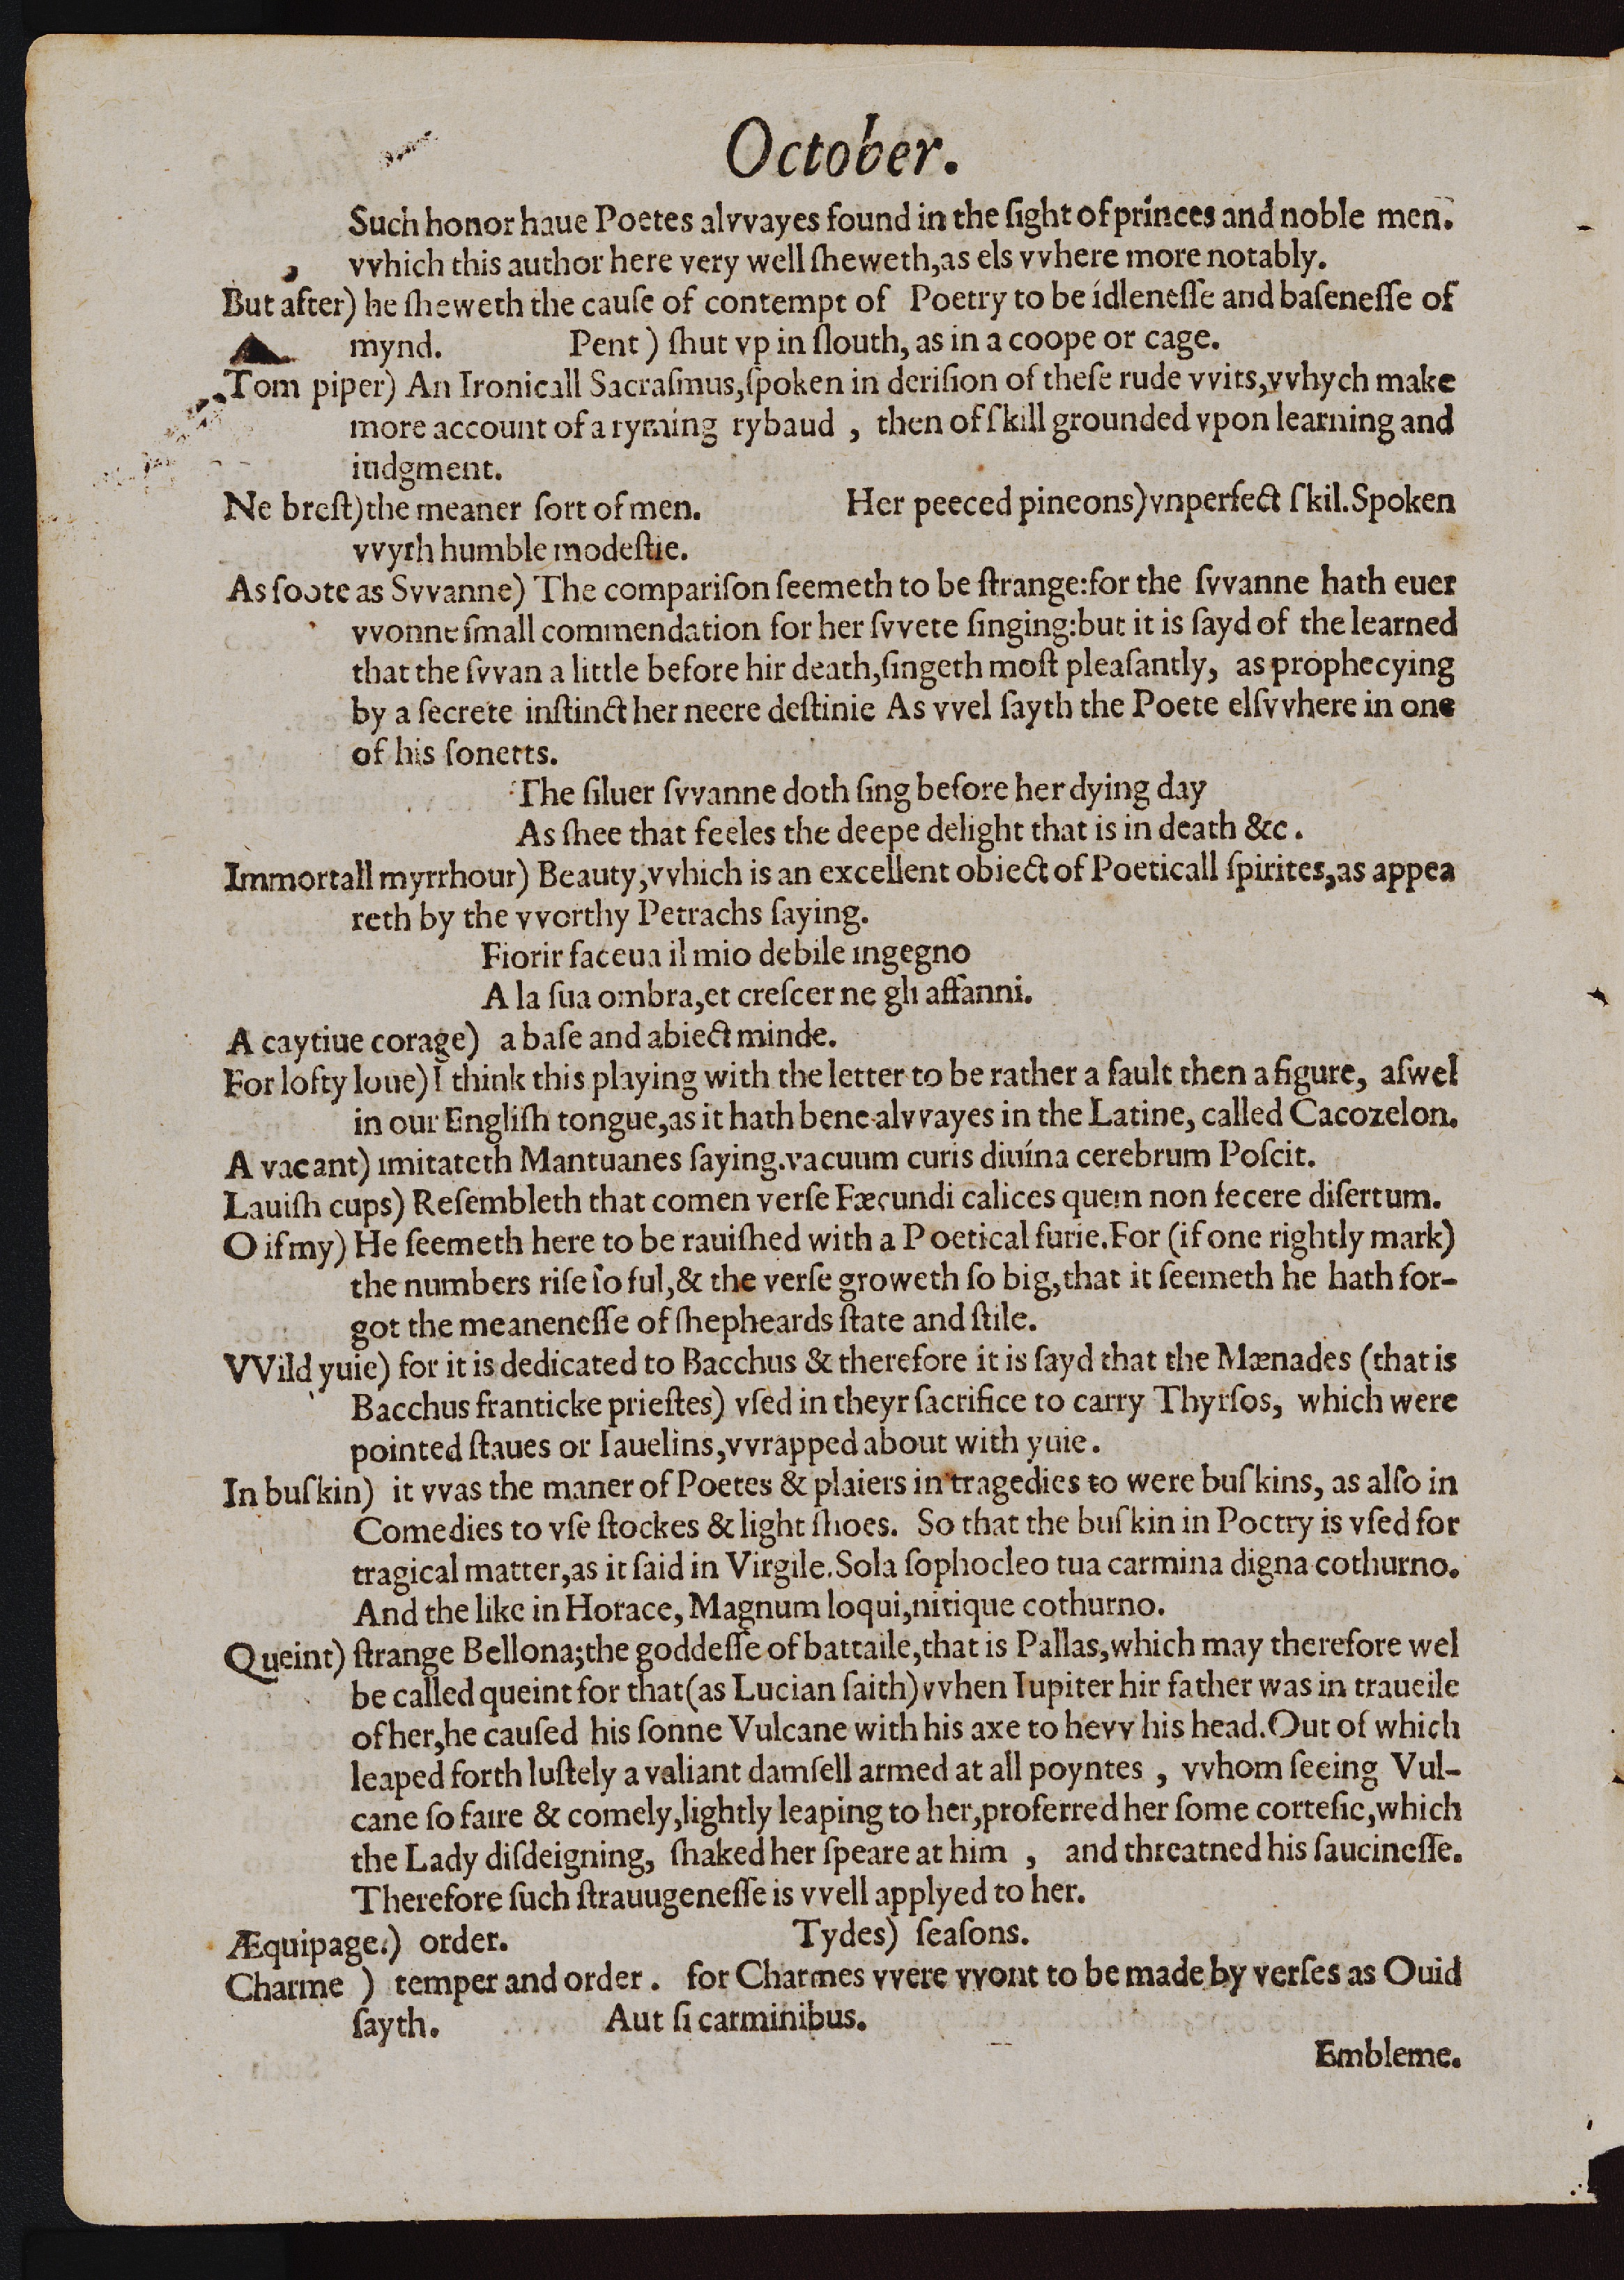 October.
Such honor haue Poetes alvvayes found in the ſight of princes and noble men.
vvhich this author here very well ſheweth,as els vvhere more notably.
But after) he ſheweth the cauſe of contempt of Poetry to be idleneſſe and baſeneſſe of
mynd. Pent ) ſhut vp in ſlouth, as in a coope or cage.
Tom piper) An Ironicall Sacraſmus,ſpoken in deriſion of theſe rude vvits,vvhych make
more account of a ryming rybaud , then of ſkill grounded vpon learning and
iudgment.
Ne breſt)the meaner ſort of men. Her peeced pineons)vnperfect ſkil.Spoken
vvyth humble modeſtie.
As ſoote as Svvanne) The compariſon ſeemeth to be ſtrange:for the ſvvanne hath euer
vvonne ſmall commendation for her ſvvete ſinging:but it is ſayd of the learned
that the ſvvan a little before hir death,ſingeth moſt pleaſantly, as prophecying
by a ſecrete inſtinct her neere deſtinie As vvel ſayth the Poete elſvvhere in one
of his ſonetts.
The ſiluer ſvvanne doth ſing before her dying day
As ſhee that feeles the deepe delight that is in death &c.
Immortall myrrhour) Beauty,vvhich is an excellent obiect of Poeticall ſpirites,as appea
reth by the vvorthy Petrachs ſaying.
Fiorir faceua il mio debile ingegno
A la ſua ombra,et creſcer ne gli affanni.
A caytiue corage) a baſe and abiect minde.
For lofty loue) I think this playing with the letter to be rather a fault then a figure, aſwel
in our Engliſh tongue,as it hath bene alvvayes in the Latine, called Cacozelon.
A vacant) imitateth Mantuanes ſaying.vacuum curis diuína cerebrum Poſcit.
Lauiſh cups) Reſembleth that comen verſe Fæcundi calices quem non fecere diſertum.
O if my) He ſeemeth here to be rauiſhed with a Poetical furie.For (if one rightly mark)
the numbers riſe ſo ful,& the verſe groweth ſo big,that it ſeemeth he hath for-
got the meaneneſſe of ſhepheards ſtate and ſtile.
VVild yuie) for it is dedicated to Bacchus & therefore it is ſayd that the Mænades (that is
Bacchus franticke prieſtes) vſed in theyr ſacrifice to carry Thyrſos, which were
pointed ſtaues or Iauelins,vvrapped about with yuie.
In buſkin) it vvas the maner of Poetes & plaiers in tragedies to were buſkins, as alſo in
Comedies to vſe ſtockes & light ſhoes. So that the buſkin in Poetry is vſed for
tragical matter,as it ſaid in Virgile.Sola ſophocleo tua carmina digna cothurno.
And the like in Horace, Magnum loqui,nitique cothurno.
Queint) ſtrange Bellona;the goddeſſe of battaile,that is Pallas,which may therefore wel
be called queint for that(as Lucian ſaith)vvhen Iupiter hir father was in traueile
of her,he cauſed his ſonne Vulcane with his axe to hevv his head.Out of which
leaped forth luſtely a valiant damſell armed at all poyntes , vvhom ſeeing Vul-
cane ſo faire & comely,lightly leaping to her,proferred her ſome corteſie,which
the Lady diſdeigning, ſhaked her ſpeare at him , and threatned his ſaucineſſe.
Therefore ſuch ſtrauugeneſſe is vvell applyed to her.
Æquipage.) order. Tydes) ſeaſons.
Charme ) temper and order. for Charmes vvere vvont to be made by verſes as Ouid
ſayth. Aut ſi carminibus.
Embleme.